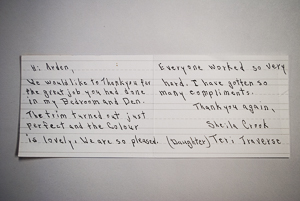 Hi Arden,
We would like to Thankyou for
the great job you had done
in my Bedroom and Den.
The trim turned out just
perfect and the Colour
is lovely. We are so pleased.
Everyone worked so very
hard. I have gotten so
many compliments.
Thankyou again,
Sheila Crook
(Daughter) Teri Traverse